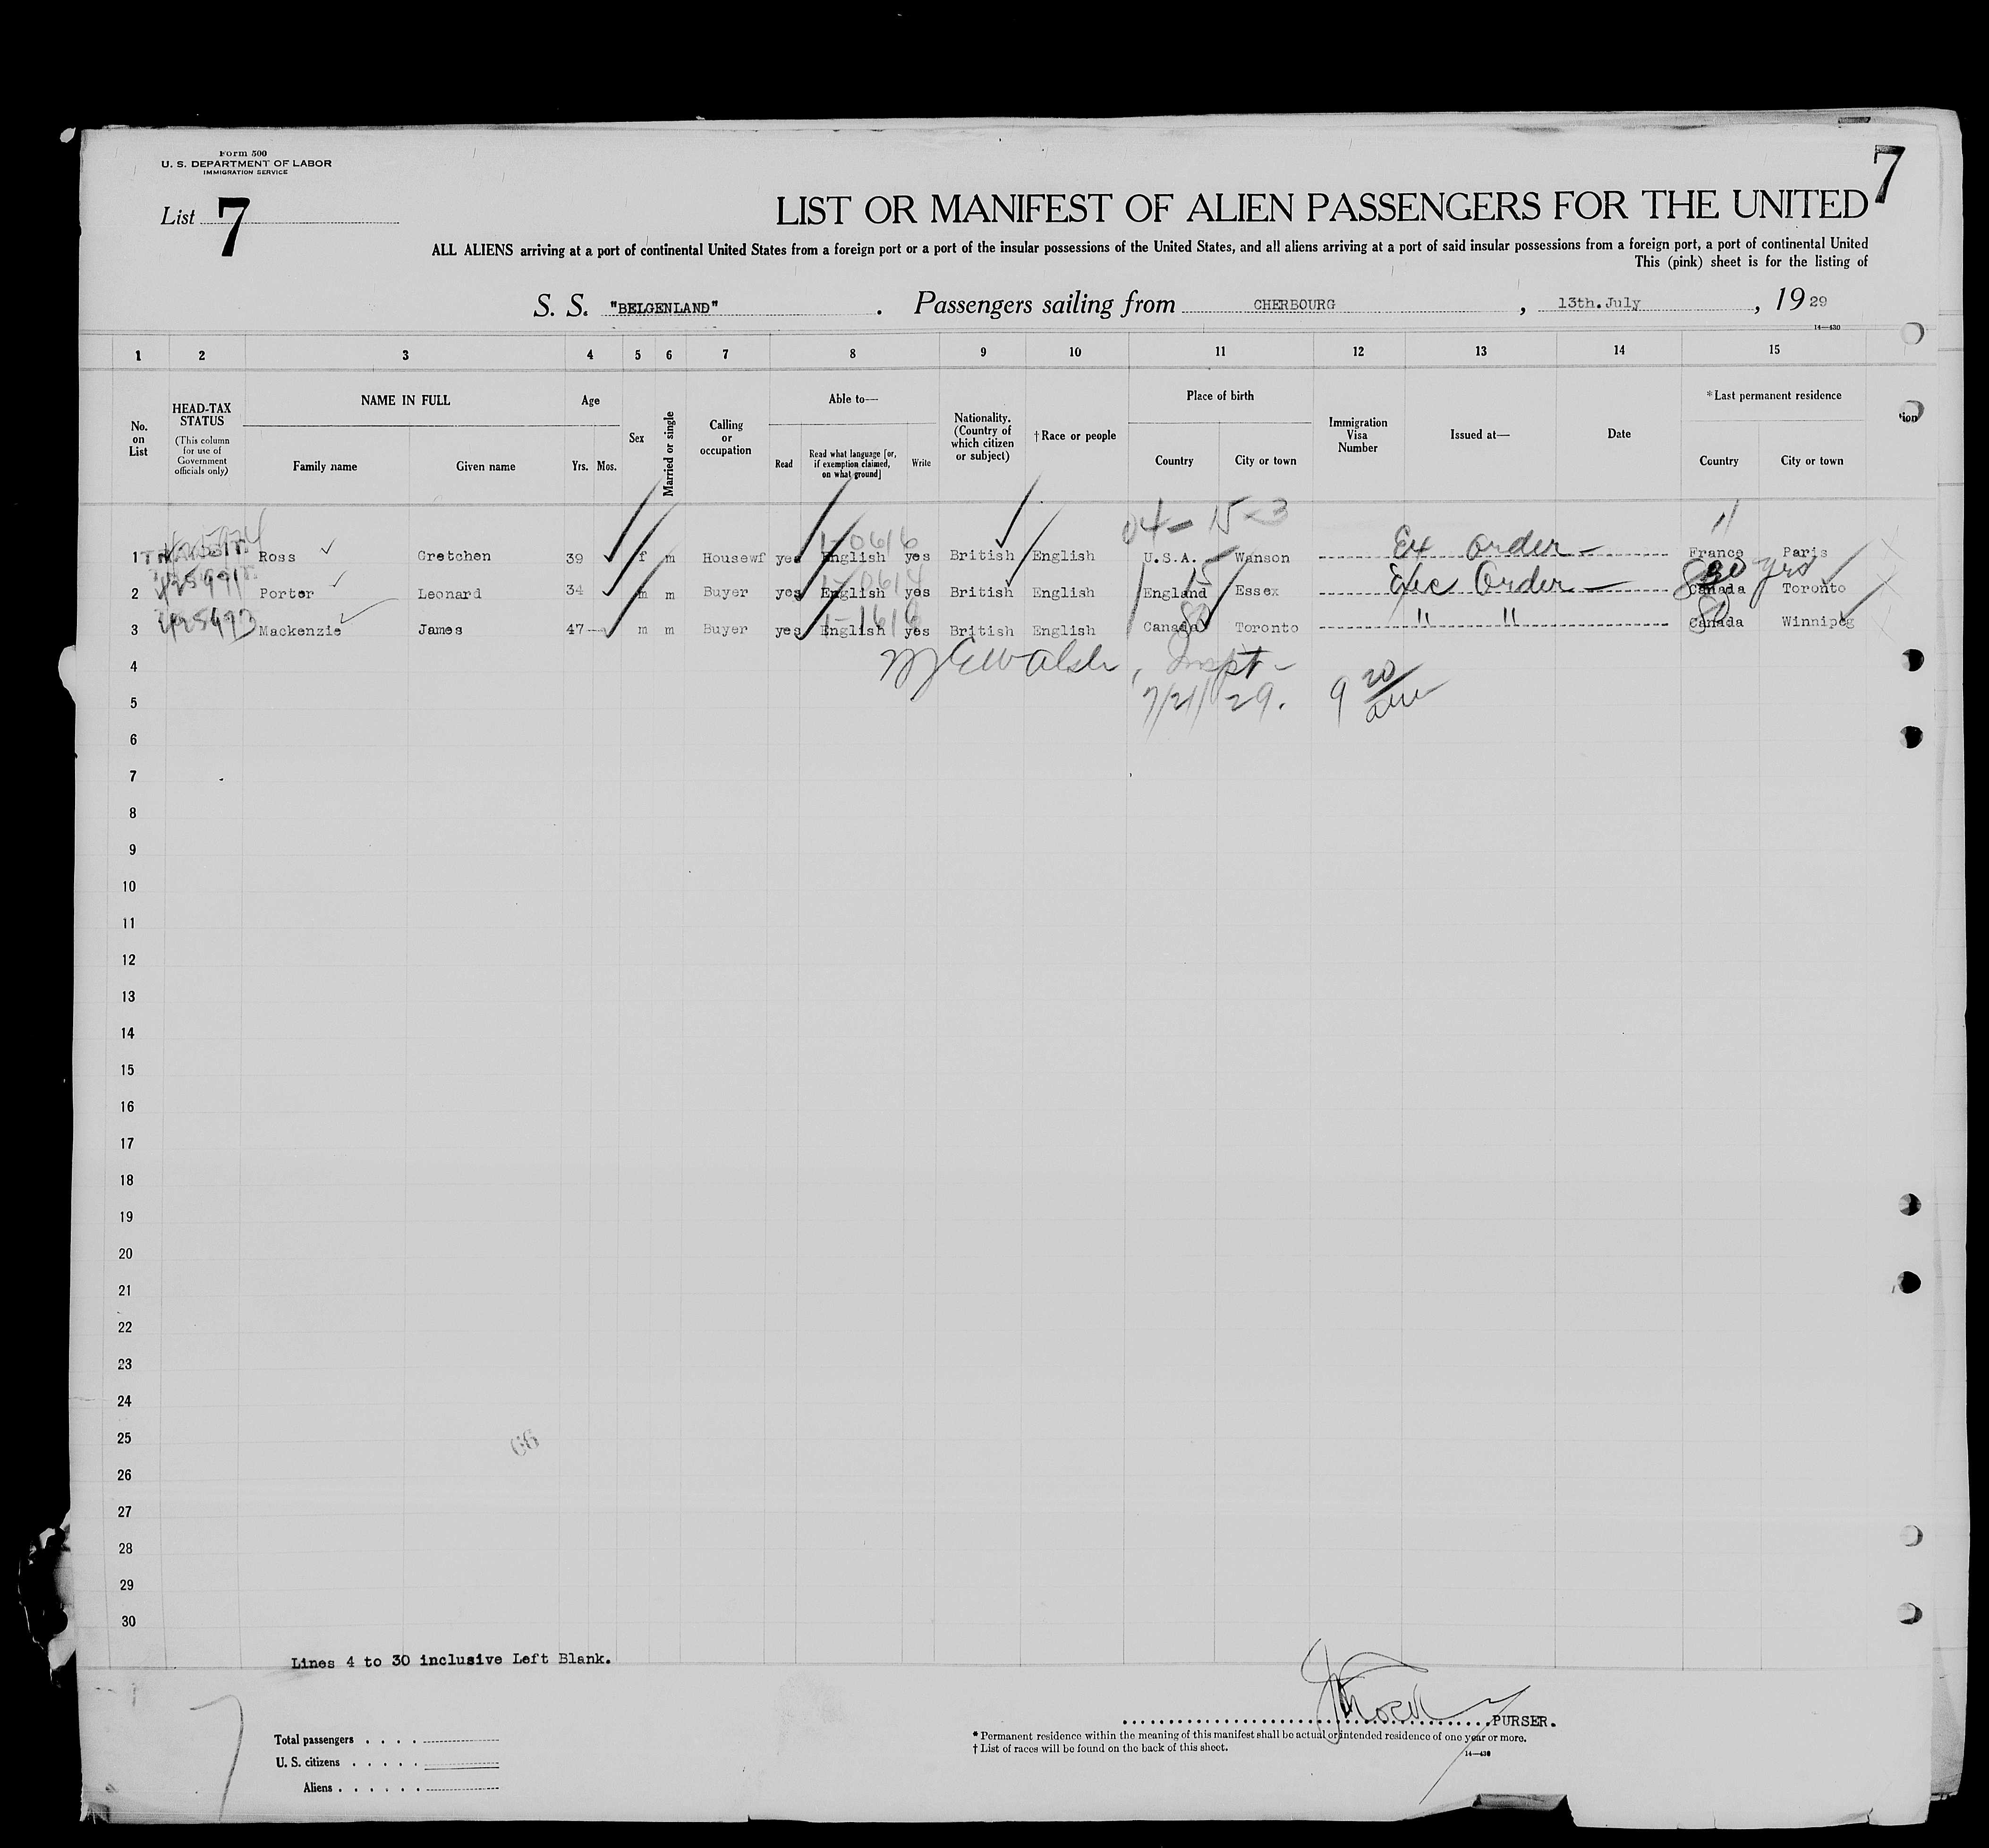 Form 500
U. S. DEPARTMENT OF LABOR
IMMIGRATION SERVICE
List 7
7
LIST OR MANIFEST OF ALIEN PASSENGERS FOR THE UNITED
ALL ALIENS arriving at a port of continental United States from a foreign port or a port of the insular possessions of the United States, and all aliens arriving at a port of said insular possessions from a foreign port, a port of continental United
This (pink) sheet is for the listing of
S. S. "BELGENLAND" . Passengers sailing from CHERBOURG , 13th.July , 19 29
14—430
1 2 3 4 5 6 7 8 9 10 11 12 13 14 15
No. on List
HEAD-TAX STATUS (This column for use of Government officials only)
NAME IN FULL
Family name Given name
Age
Yrs. Mos.
Sex
Married or single
Calling or occupation
Able to—
Read Read what language [or, if exemption claimed, on what ground] Write
Nationality. (Country of which citizen or subject)
†Race or people
Place of birth
Country City or town
Immigration Visa Number
Issued at—
Date
*Last permanent residence
Country City or town
04 - 15 - 3
1 Ross Gretchen 39 f m Housewf yes English yes British English U.S.A. Wanson Ex Order - France Paris
2 Porter Leonard 34 m m Buyer yes English yes British English England Essex Exec Order - Canada Toronto
3 Mackenzie James 47 m m Buyer yes English yes British English Canada Toronto " " Canada Winnipeg
4 Walsh, Inspt -
5 7/21/29. 9 20 am
6
7
8
9
10
11
12
13
14
15
16
17
18
19
20
21
22
23
24
25
26
27
28
29
30
66
Lines 4 to 30 inclusive Left Blank.
7
PURSER.
Total passengers
U. S. citizens
Aliens
* Permanent residence within the meaning of this manifest shall be actual or intended residence of one year or more.
† List of races will be found on the back of this sheet.
14—430